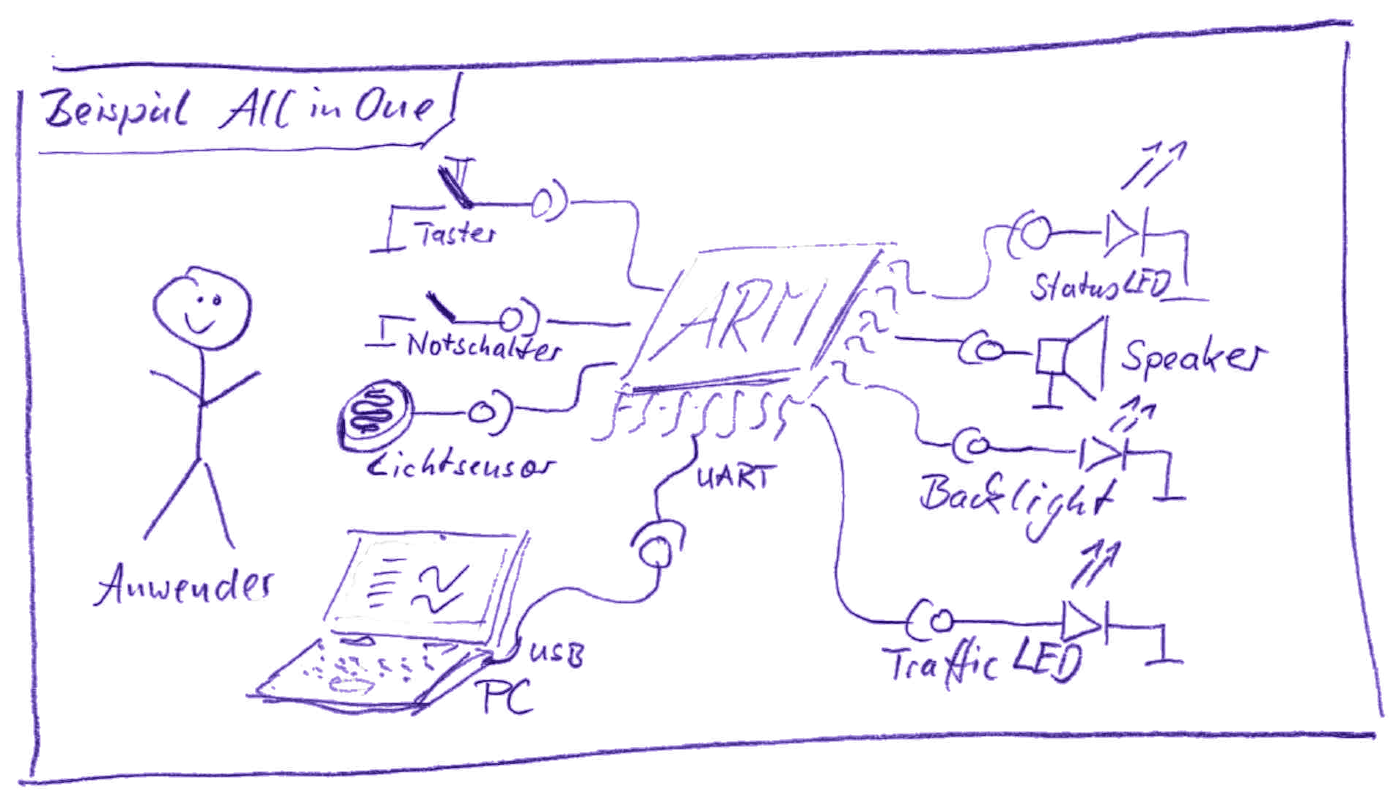 Beispiel All in One
Taster
Notschalter
Lichtsensor
Anwender
ARM
UART
USB
PC
Status LED
Speaker
Backlight
Traffic LED